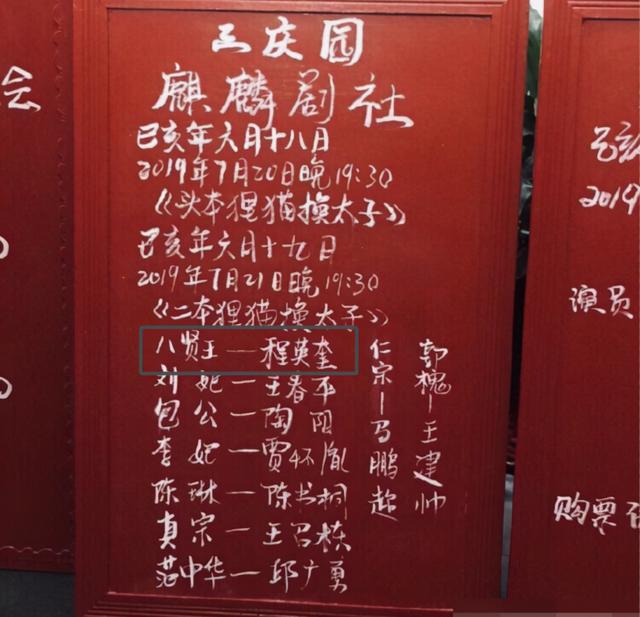 三庆园
麒麟剧社
己亥年六月十八日
2019年7月20日晚19:30
《头本狸猫换太子》
己亥年六月十九日
2019年7月21日晚19:30
《二本狸猫换太子》
八贤王—程英奎
刘妃—王春平
包公—陶阳
李妃—贾怀胤
陈琳—陈书桐
真宗—王召栋
范中华—邱广勇
仁宗—马鹏超
郭槐—王建帅
会
己亥
2019
演员
购票